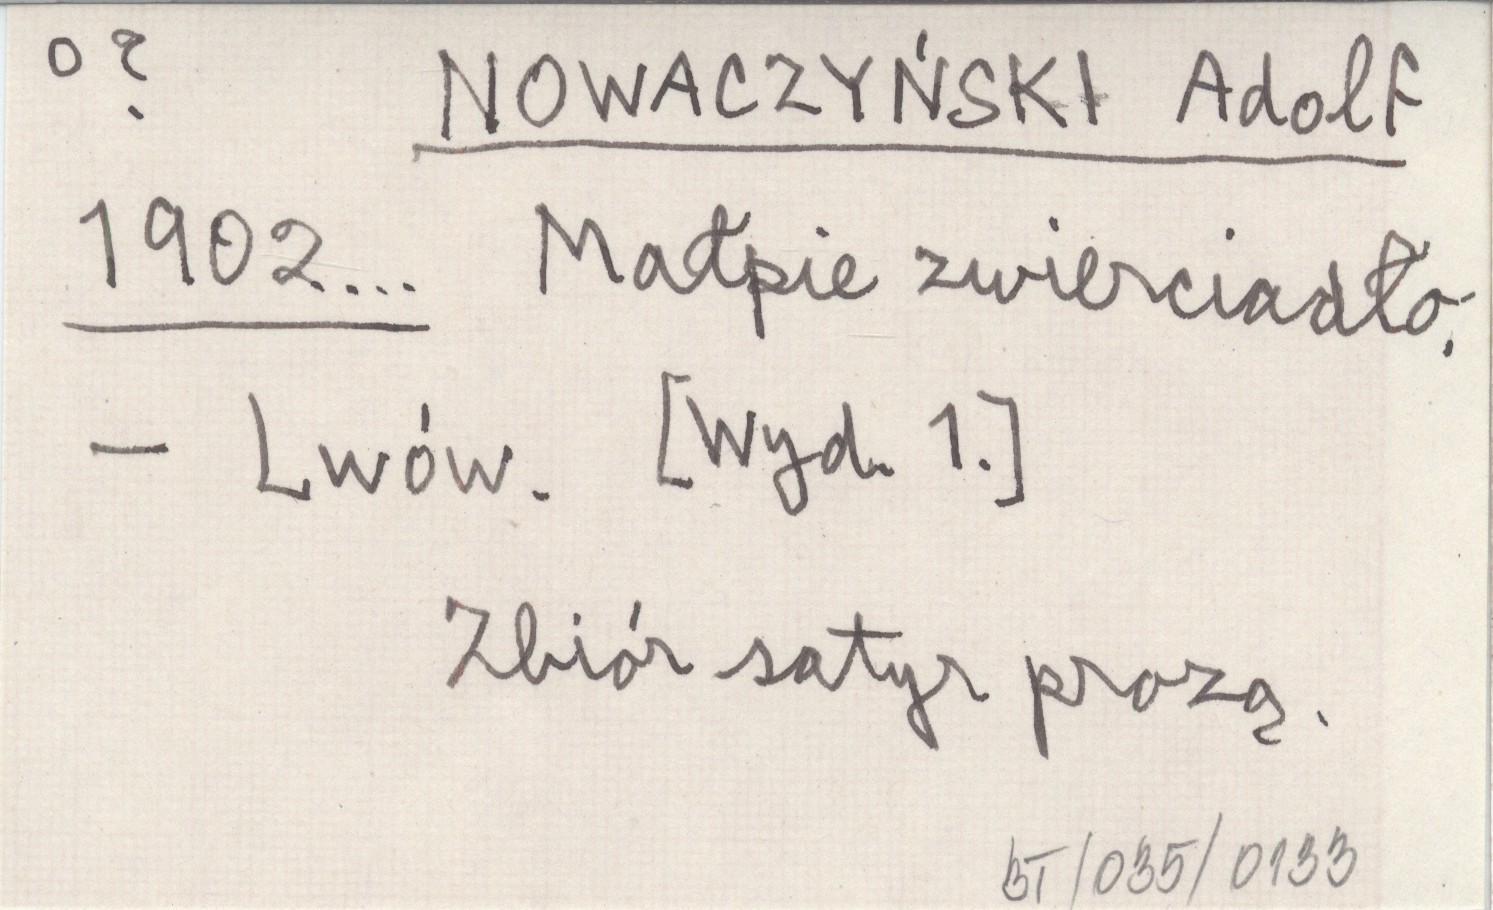 o ?
NOWACZYŃSKI Adolf
1902... Małpie zwierciadło.
– Lwów. [Wyd. 1.]
Zbiór satyr prozą.
BT/035/0133